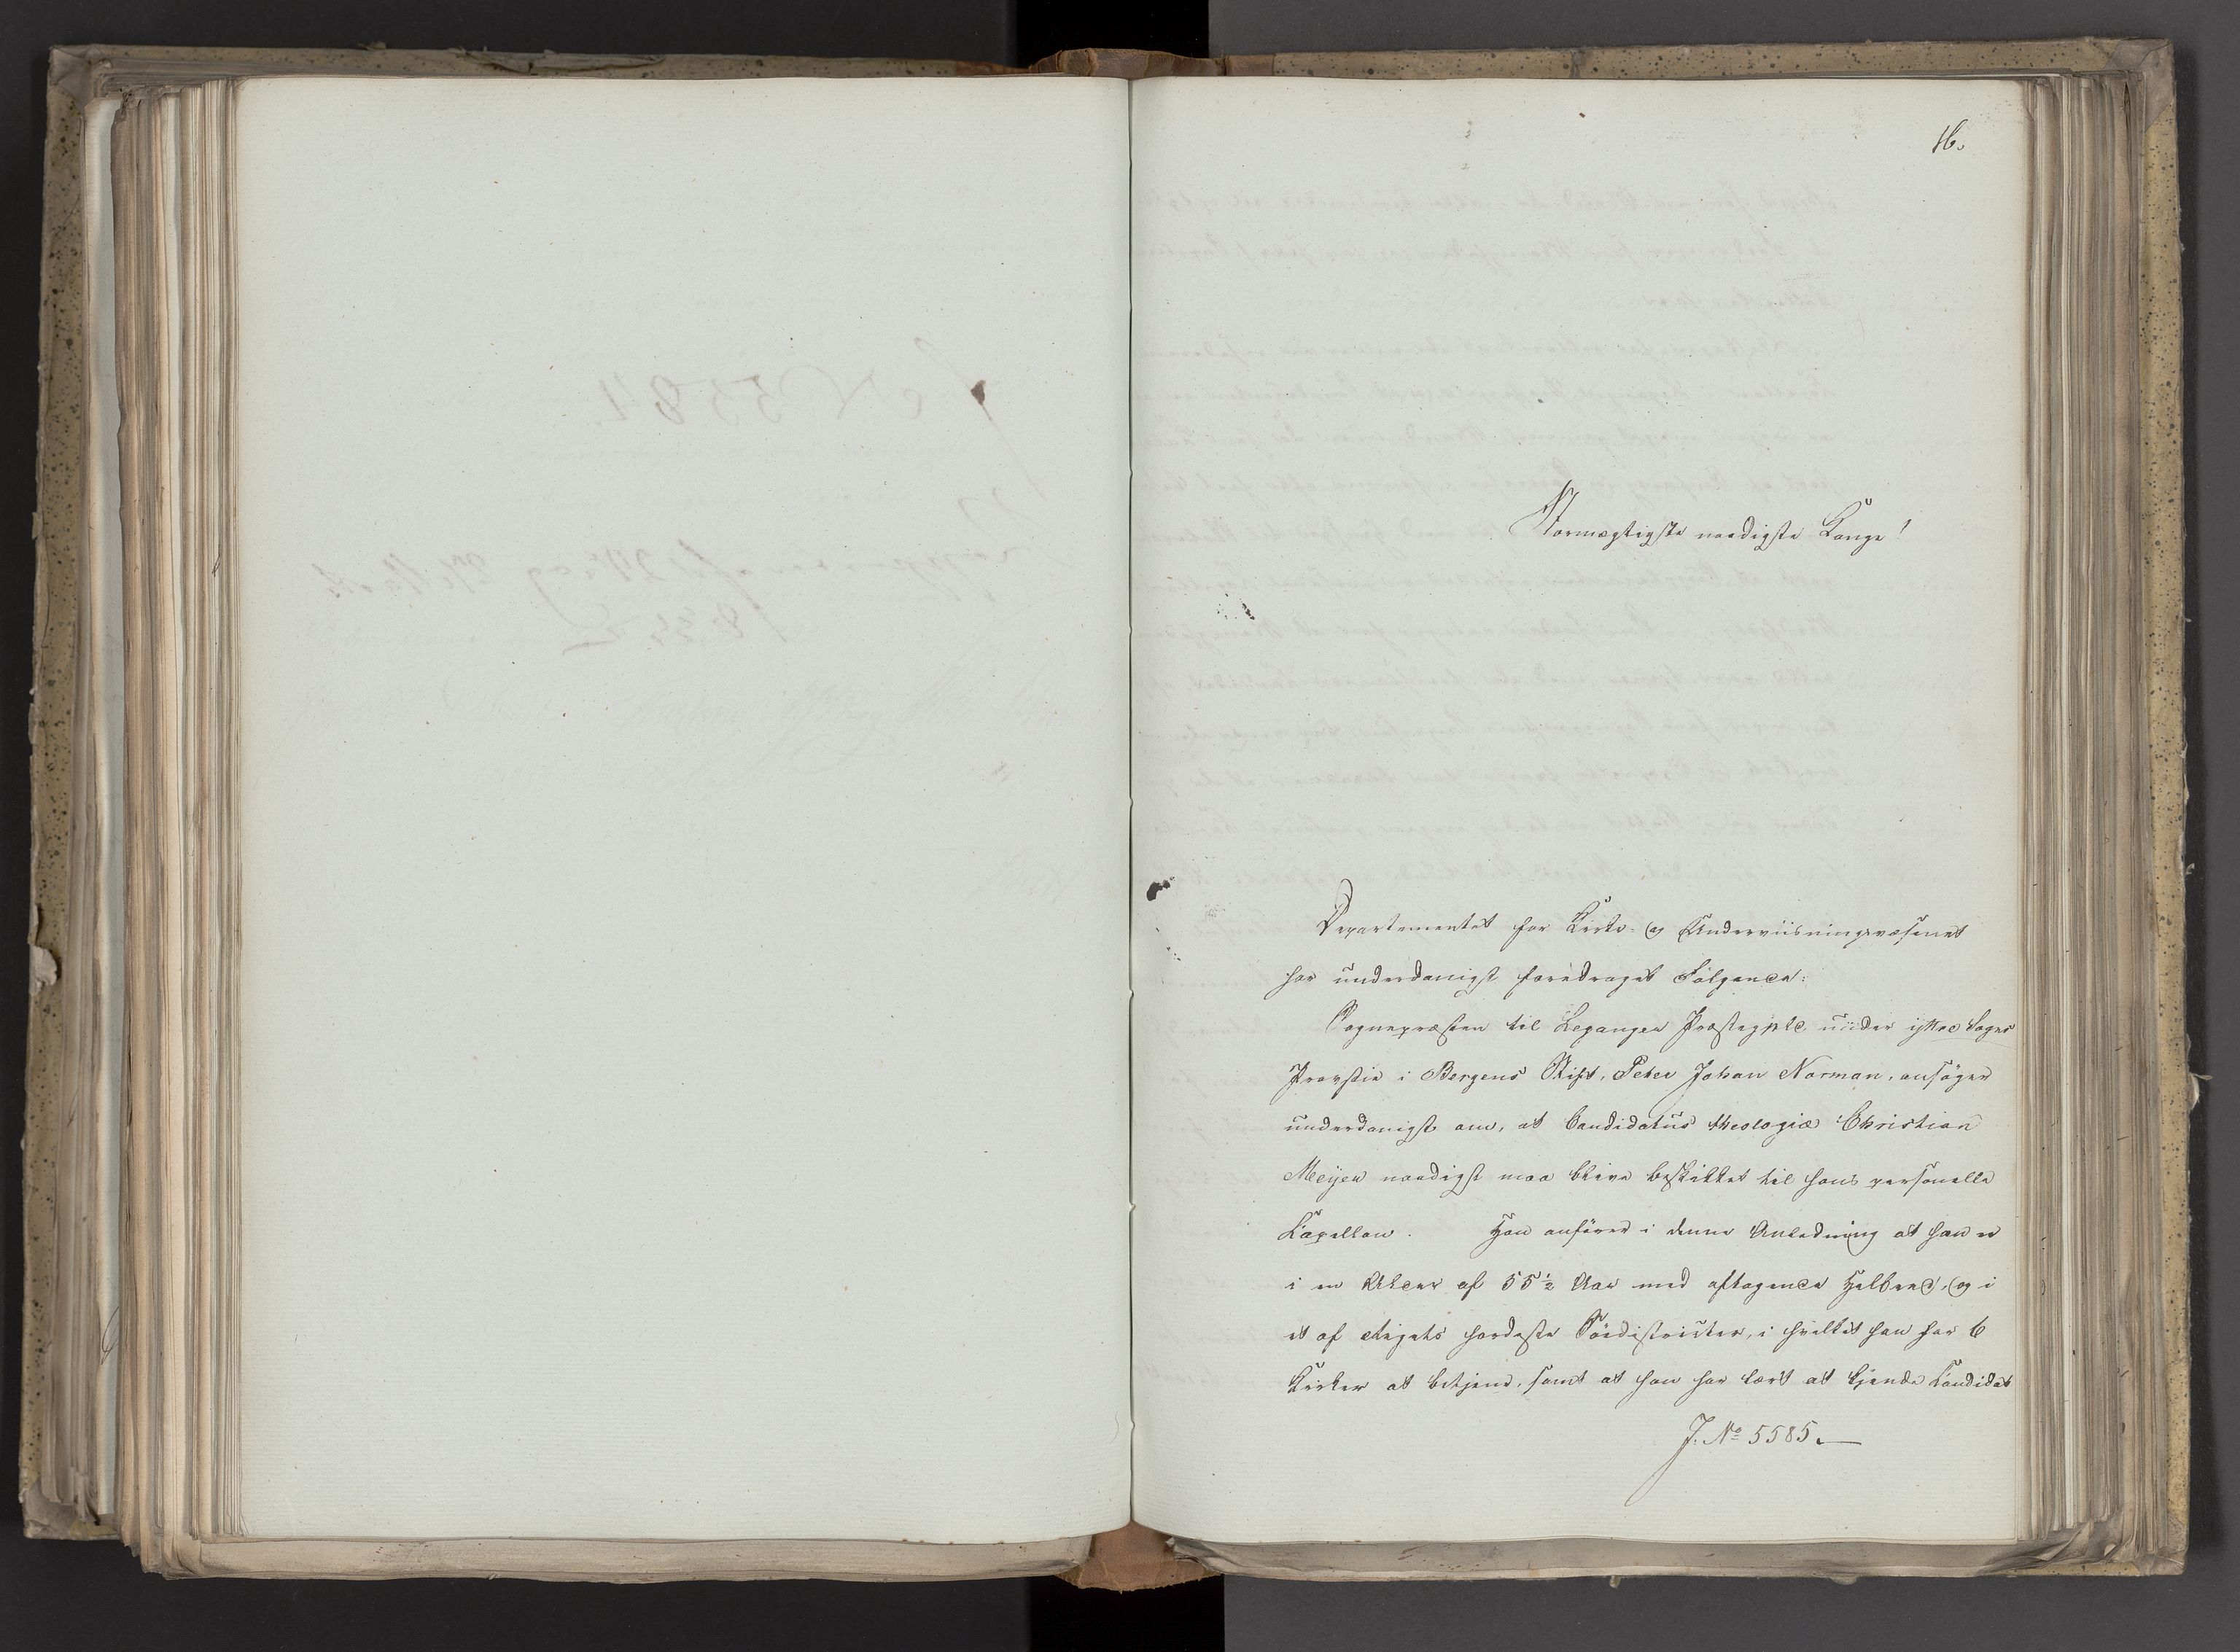 16.
Stormægtigste naadigste Konge!
Departementet for Kirke- og Underviisningsvæsenet
har underdanigst foredraget Følgende:
Sognepræsten til Leganger Præstegjeld under ytre Sogns
Provstie i Bergens Stift, Peter Johan Norman, ansøger
underdanigst om, at Candidatus theologiæ Christian
Meyer naadigst maa blive beskikket til hans personelle
Kapellan. Han anfører i denne Anledning at han er
i en Alder af 55½ Aar med aftagende Helbred, og i
et af Rigets haardeste Sødistricter, i hvilket han har 6
Kirker at betjene, samt at han har lært at kjende Kandidat
J. No 5585.